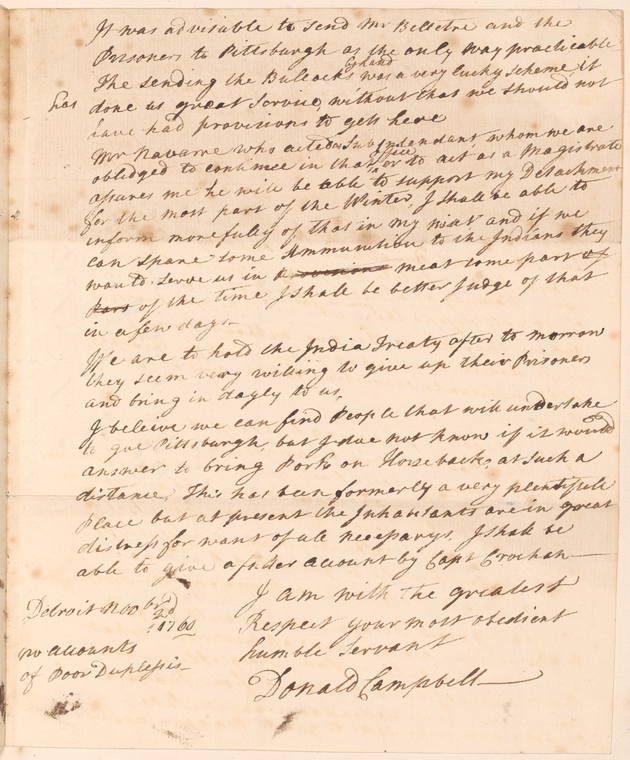 It was advisable to send Mr Belletre and the
Prisoners to Pittsburgh as the only way practicable
The sending the Bullocks was a very lucky scheme, it
has done us great Service, without that we should not
have had provisions to gett here
Mr Navarre who acted as Sub Intendant whom we are
obledged to continue in that office or to act as a Magistrate
assures me he will be able to support my Detachment
for the most part of the Winter, I shall be able to
inform more fully of that in my next and if we
can spare some Ammunition to the Indians they
would serve us in meat some part of
Part of the time I shall be better Judge of that
in a few days —
We are to hold the India Treaty after to morrow
they seem very willing to give up their Prisoners
and bring in dayly to us,
I beleive we can find People that will undertake
to goe Pittsburgh, but I doe not know if it would
answer to bring Pork on Horseback, at such a
distance, This has been formerly a very plentifull
Place but at present the Inhabitants are in great
distress for want of all necessarys. I shall be
able to give a fuller account by Capt Croghan —
I am with the greatest
Respect your most obedient
humble Servant
Donald Campbell —
Detroit Novbr
2d
1760
no accounts
of Poor Duplessis —